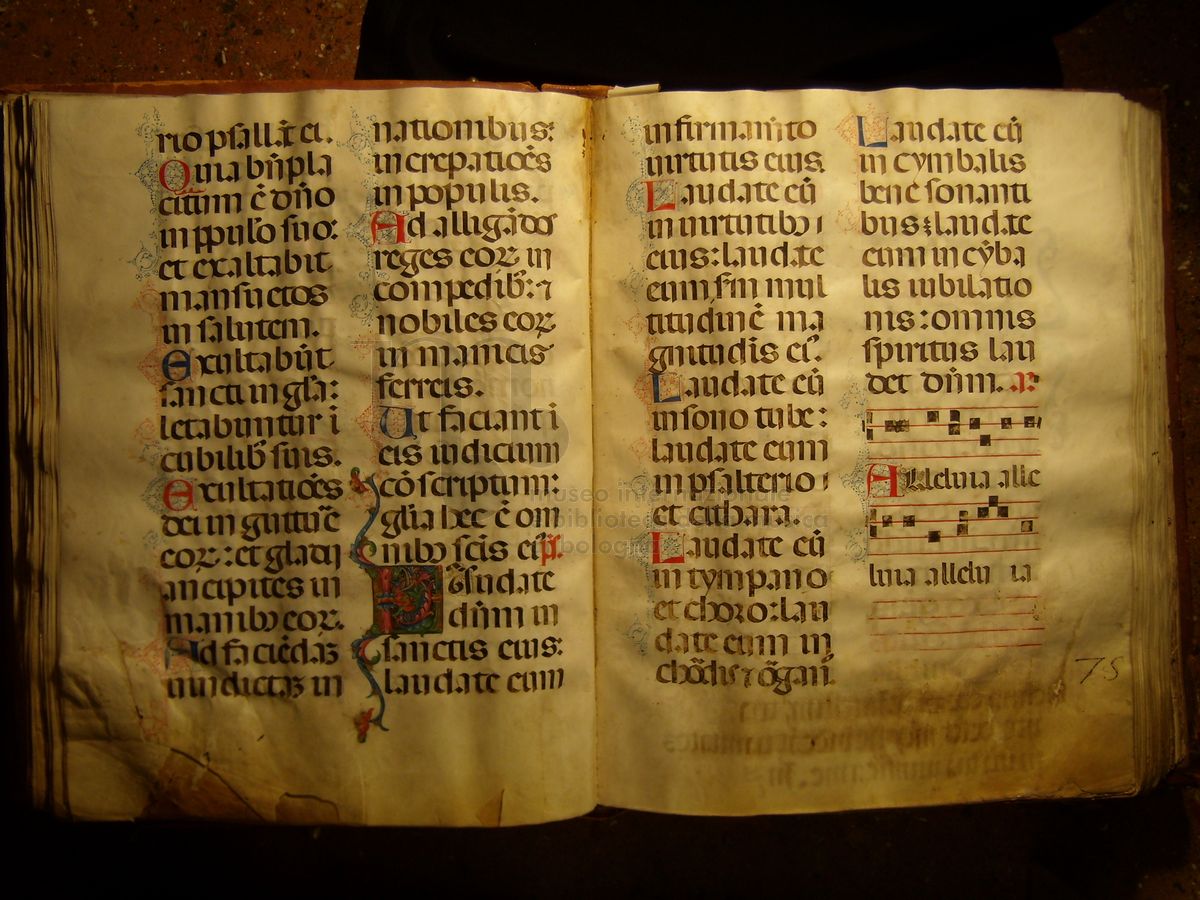 rio psallāt ei.
Quia bn̄pla
citum ē dn̄o
in ppulo suo:
et exaltabit
mansuetos
in salutem.
Exultabūt
sancti in glā:
letabuntur ī
cubilib' suis.
Exultatiōēs
dei in gutturē
eoꝝ: et gladij
ancipites in
manibꝰ eoꝝ.
Ad faciēdaꝫ
uindictaꝫ in
nationibus:
increpatiōēs
in populis.
Ad alligādos
reges eoꝝ in
compedib': ⁊
nobiles eoꝝ
in manicis
ferreis.
Ut faciant ī
eis iudicium
cōscriptum:
gl̄ia hec ē om
nibꝰ scīs eiꝰ. p̄.
Laudate
dn̄m in
sanctis eius:
laudate eum
in firmamīto
uirtutis eius.
Laudate eū
in uirtutibꝰ
eius: laudate
eum sm̄ mul
titudinē ma
gnitudīs eiꝰ.
Laudate eū
in sono tube:
laudate eum
in psalterio
et cithara.
Laudate eū
in tympano
et choro: lau
date eum in
chōdis ⁊ ōgan̄
Laudate eū
in cymbalis
bene sonanti
bus: laudate
eum in cȳba
lis iubilatio
nis: omnis
spiritus lau
det dn̄m. a:
Alleluia alle
luia allelu ia
75
museo internazionale
biblioteca della musica
bologna